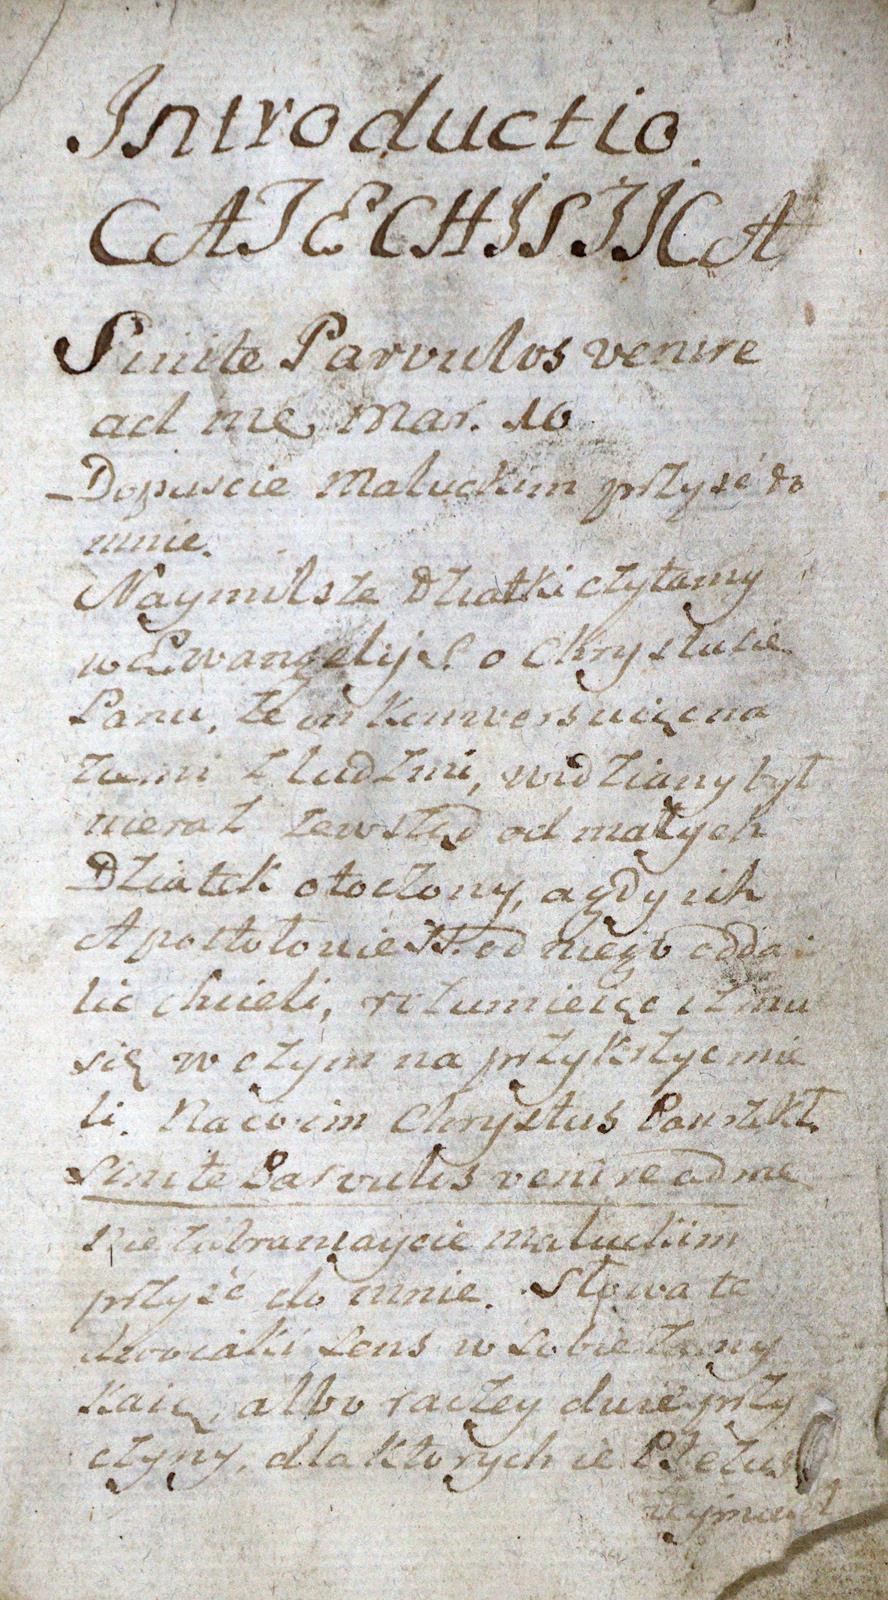 Introductio
CATECHISTICA
Sinite Parvulos venire
ad me Mar. 10
Dopuscie Maluckim przysć do
mnie.
Naymilsze Dziatki czytamy
w Ewangelij S. o Chrystusie
Panu, że on konwersuiąc na
ziemi z ludzmi, widziany był
nieraz zewsząd od małych
Dziatek otoczony, a gdy ich
Apostołowie SS. od niego odda
lic chcieli, rozumieiąc iż mu
się w czym na przykrzyc mie
li. Na co im Chrystus Pan rzekł.
Sinite Parvulos venire ad me
Nie zabraniaycie maluckim
przysć do mnie. Słowa te
dwoiaki sens w sobie zamy
kaią, albo raczey dwie przy
czyny, dla ktorych ie P. Jezus